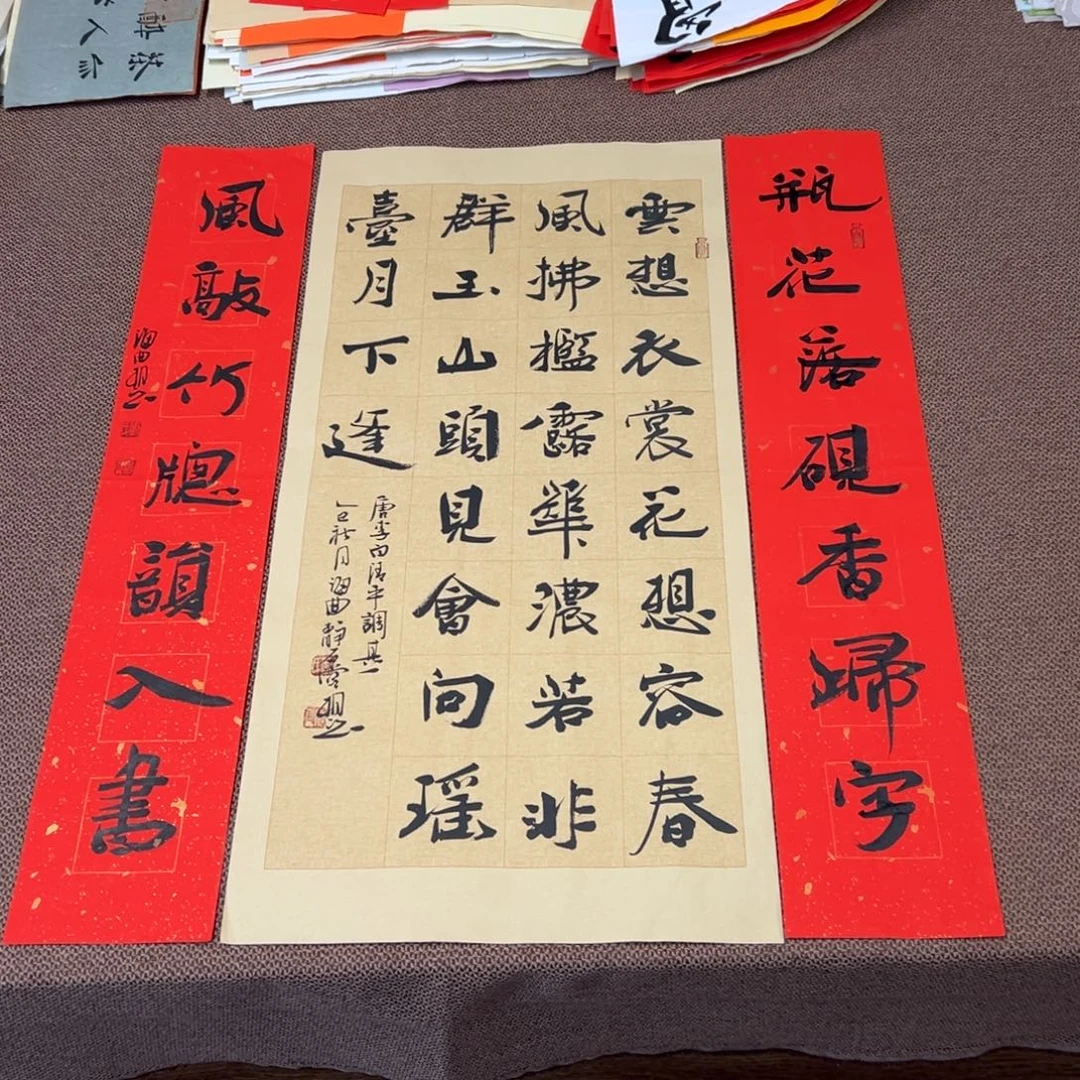 瓶花落硯香歸字
雲想衣裳花想容春
風拂檻露華濃若非
群玉山頭見會向瑤
臺月下逢
唐李白清平調其一
乙巳秋月海曲靜
風敲竹牕韻入書
海曲